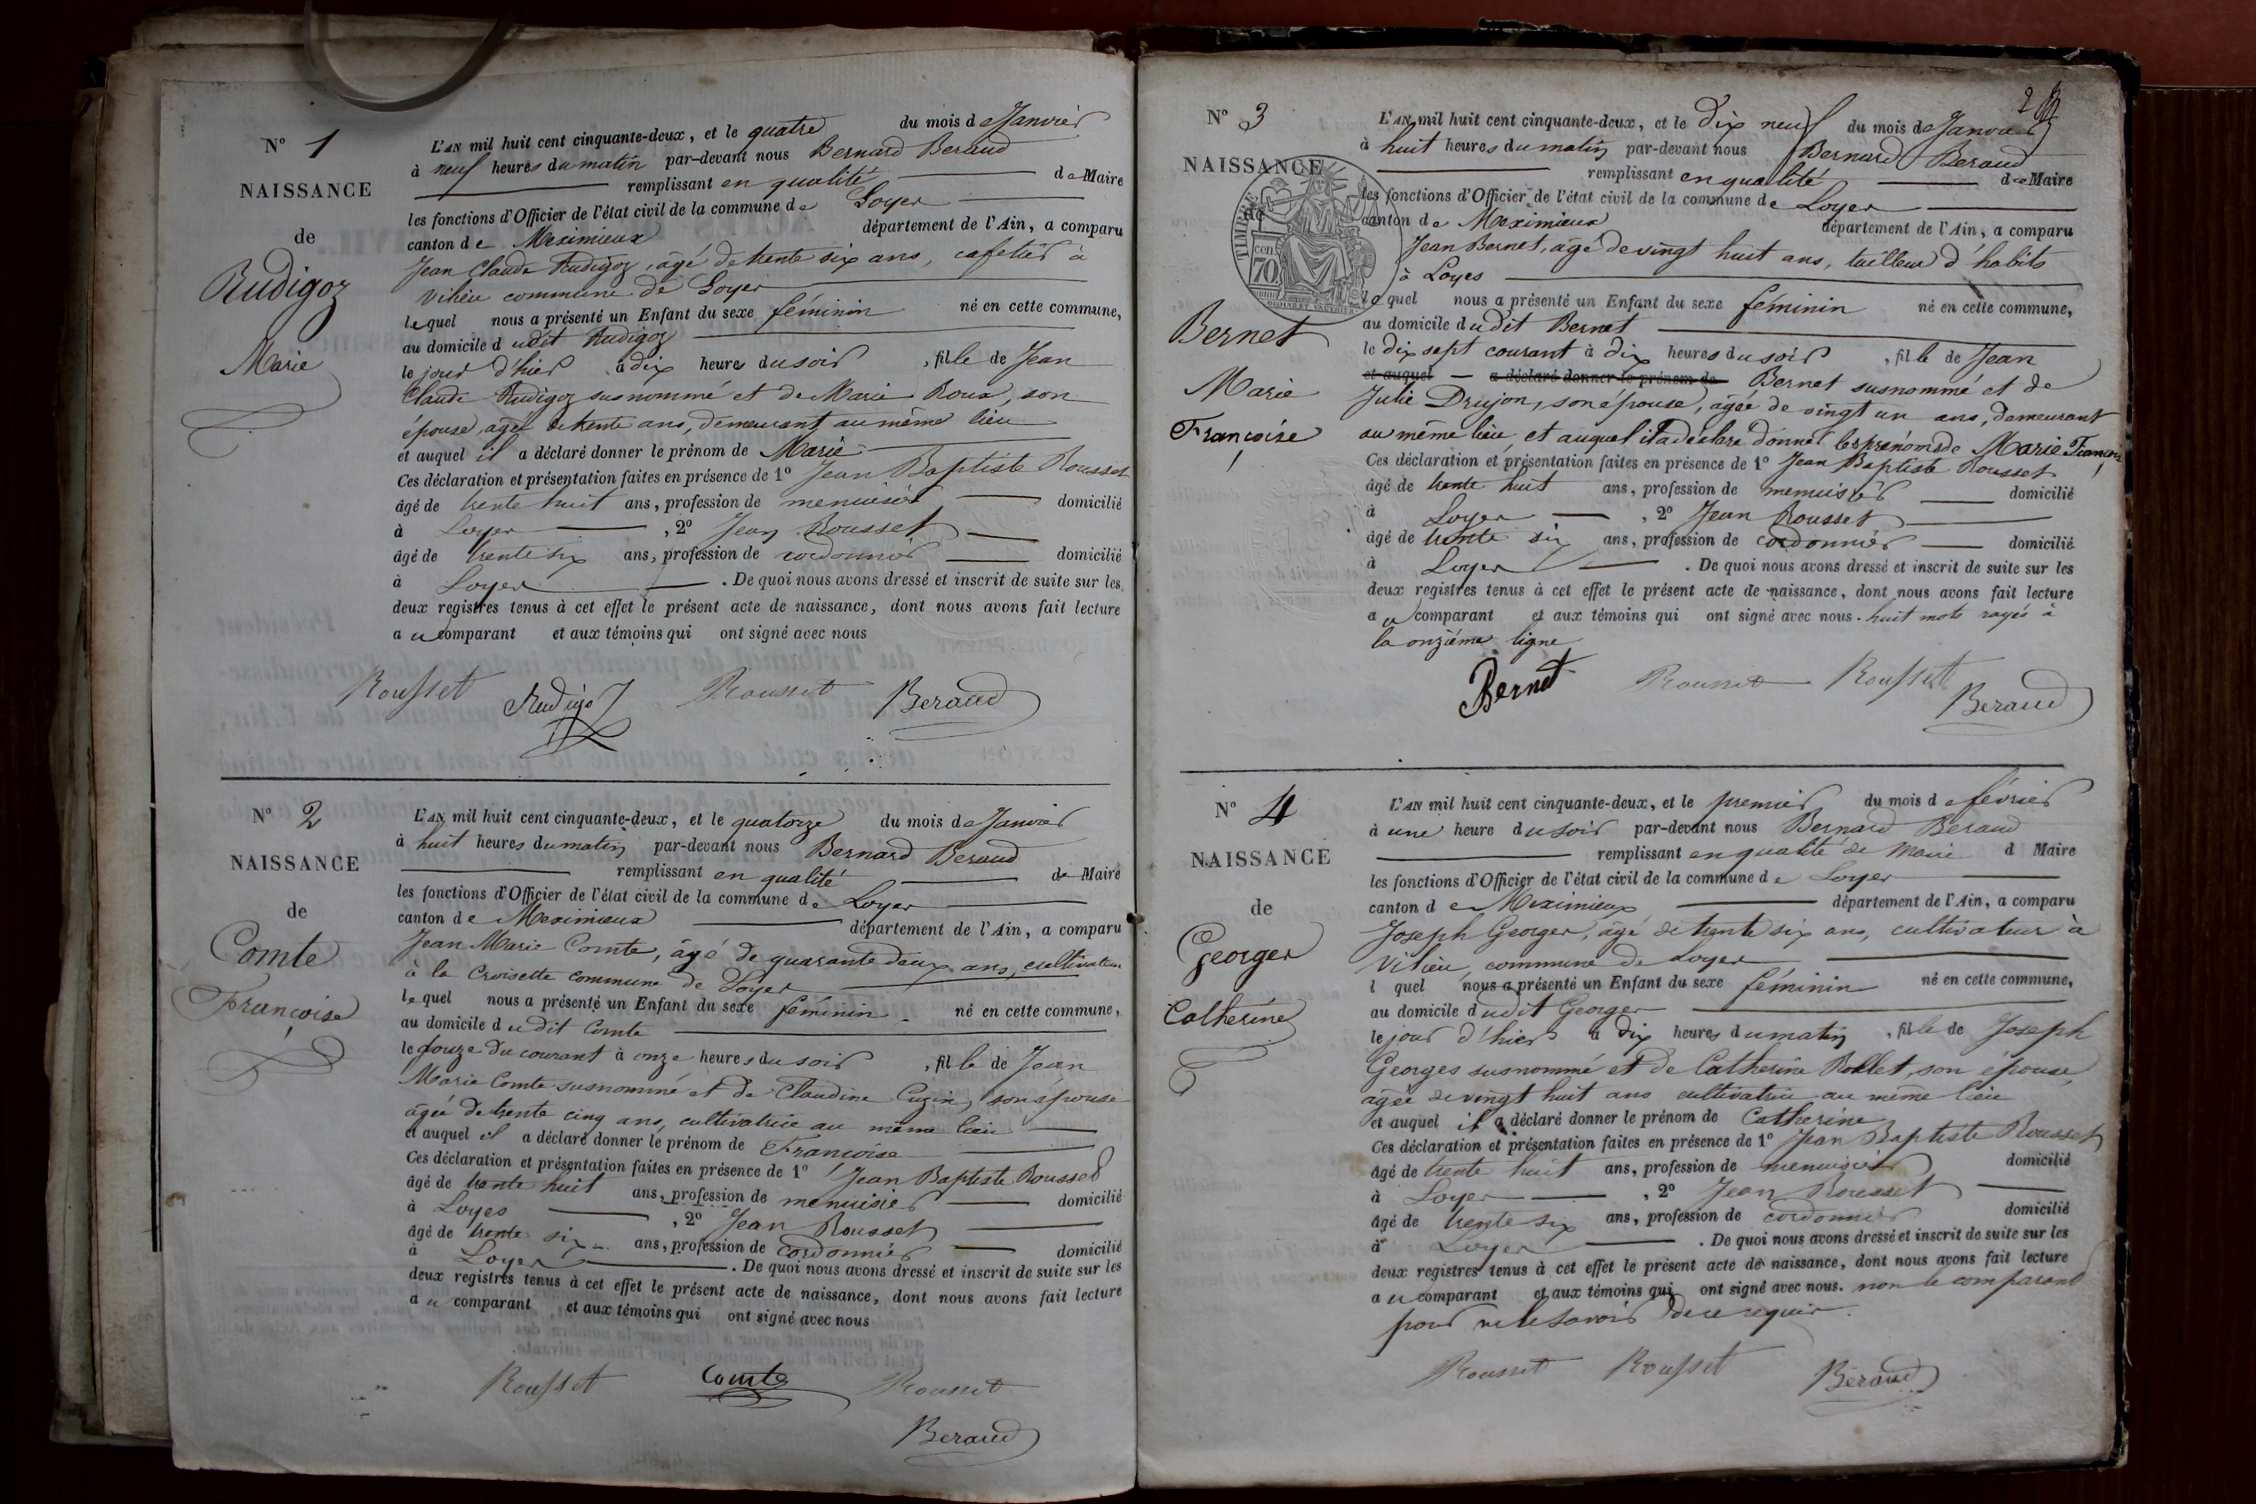 N° 1
NAISSANCE
de
Rudigoz
Marie
L'AN mil huit cent cinquante-deux, et le quatre du mois de Janvier
à neuf heures du matin par-devant nous Bernard Beraud
remplissant en qualité de Maire
les fonctions d'Officier de l'état civil de la commune de Loyes
canton de Meximieux département de l'Ain, a comparu
Jean Claude Rudigoz, âgé de trente six ans, cafetier à
Villieu commune de Loyes
lequel nous a présenté un Enfant du sexe féminin né en cette commune,
au domicile dudit Rudigoz
le jour d'hier à dix heures du soir, fille de Jean
Claude Rudigoz susnommé et de Marie Roux, son
épouse, agée de trente ans, demeurant au même lieu
et auquel il a déclaré donner le prénom de Marie
Ces déclaration et présentation faites en présence de 1° Jean Baptiste Rousset
âgé de trente huit ans, profession de menuisier domicilié
à Loyes, 2° Jean Rousset
âgé de trente six ans, profession de cordonnier domicilié
à Loyes. De quoi nous avons dressé et inscrit de suite sur les
deux registres tenus à cet effet le présent acte de naissance, dont nous avons fait lecture
au comparant et aux témoins qui ont signé avec nous
Rousset Rudigoz Rousset Beraud
N° 2
NAISSANCE
de
Comte
Françoise
L'AN mil huit cent cinquante-deux, et le quatorze du mois de Janvier
à huit heures du matin par-devant nous Bernard Beraud
remplissant en qualité de Maire
les fonctions d'Officier de l'état civil de la commune de Loyes
canton de Meximieux département de l'Ain, a comparu
Jean Marie Comte, âgé de quarante deux ans, cultivateur
à la Croisette commune de Loyes
lequel nous a présenté un Enfant du sexe féminin né en cette commune,
au domicile dudit Comte
le douze du courant à onze heures du soir, fille de Jean
Marie Comte susnommé et de Claudine Cuzin, son épouse
âgée de trente cinq ans, cultivatrice au même lieu
et auquel il a déclaré donner le prénom de Françoise
Ces déclaration et présentation faites en présence de 1° Jean Baptiste Rousset
âgé de trente huit ans, profession de menuisier domicilié
à Loyes, 2° Jean Rousset
âgé de trente six ans, profession de cordonnier domicilié
à Loyes. De quoi nous avons dressé et inscrit de suite sur les
deux registres tenus à cet effet le présent acte de naissance, dont nous avons fait lecture
au comparant et aux témoins qui ont signé avec nous
Rousset Comte Rousset
Beraud
2
N° 3
NAISSANCE
de
TIMBRE
cen
70
Bernet
Marie
Françoise
L'AN mil huit cent cinquante-deux, et le dix neuf du mois de Janvier
à huit heures du matin par-devant nous Bernard Beraud
remplissant en qualité de Maire
les fonctions d'Officier de l'état civil de la commune de Loyes
canton de Meximieux département de l'Ain, a comparu
Jean Bernet, âgé de vingt huit ans, tailleur d'habits
à Loyes
lequel nous a présenté un Enfant du sexe féminin né en cette commune,
au domicile dudit Bernet
le dix sept courant à dix heures du soir, fille de Jean
et auquel a déclaré donner le prénom de Bernet susnommé et de
Julie Drujon, son épouse, âgée de vingt un ans, demeurant
au même lieu, et auquel il a déclaré donner les prénoms de Marie Françoise
Ces déclaration et présentation faites en présence de 1° Jean Baptiste Rousset
âgé de trente huit ans, profession de menuisier domicilié
à Loyes, 2° Jean Rousset
âgé de trente six ans, profession de cordonnier domicilié
à Loyes. De quoi nous avons dressé et inscrit de suite sur les
deux registres tenus à cet effet le présent acte de naissance, dont nous avons fait lecture
au comparant et aux témoins qui ont signé avec nous. huit mots rayés à
la onzième ligne
Bernet Rousset Rousset
Beraud
N° 4
NAISSANCE
de
Georges
Catherine
L'AN mil huit cent cinquante-deux, et le premier du mois de février
à une heure du soir par-devant nous Bernard Beraud
remplissant en qualité de Maire d Maire
les fonctions d'Officier de l'état civil de la commune de Loyes
canton de Meximieux département de l'Ain, a comparu
Joseph Georges, âgé de trente six ans, cultivateur à
Villieu, commune de Loyes
l quel nous a présenté un Enfant du sexe féminin né en cette commune,
au domicile dudit Georges
le jour d'hier à dix heures du matin, fille de Joseph
Georges susnommé et de Catherine Rollet, son épouse,
âgée de vingt huit ans cultivatrice au même lieu
et auquel il a déclaré donner le prénom de Catherine
Ces déclaration et présentation faites en présence de 1° Jean Baptiste Rousset
âgé de trente huit ans, profession de menuisier domicilié
à Loyes, 2° Jean Rousset
âgé de trente six ans, profession de cordonnier domicilié
à Loyes. De quoi nous avons dressé et inscrit de suite sur les
deux registres tenus à cet effet le présent acte de naissance, dont nous avons fait lecture
au comparant et aux témoins qui ont signé avec nous. non le comparant
pour ne le savoir de ce requis.
Rousset Rousset Beraud